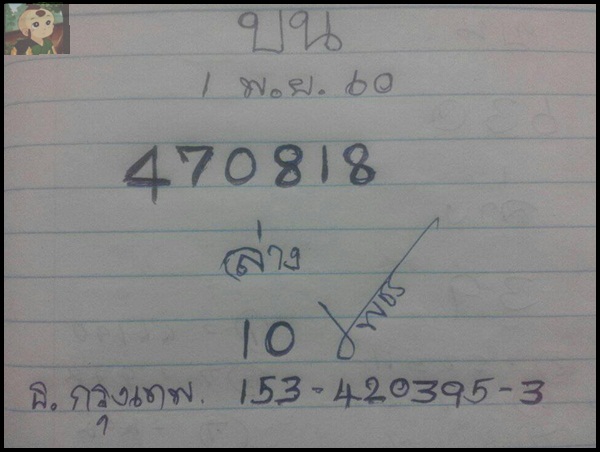 บน
1 พ.ย. 60
470818
ล่าง
10
ธ. กรุงเทพ. 153-420395-3